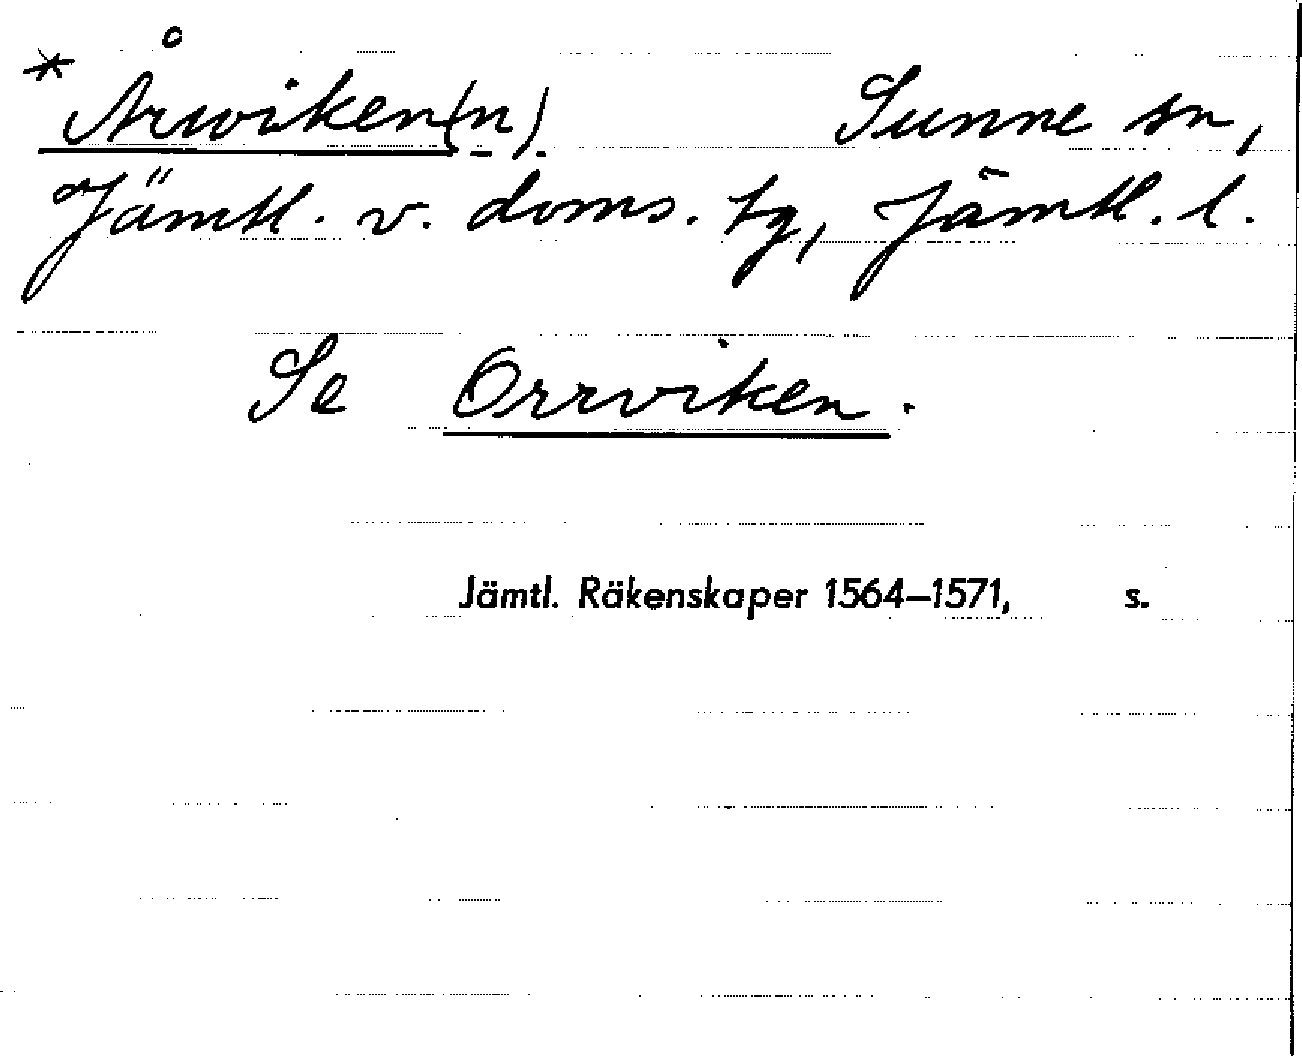 * Årwiken(n) Sunne sn,
Jämtl. v. doms. tg, Jämtl. l.
Se Orrviken.
Jämtl. Räkenskaper 1564–1571, s.